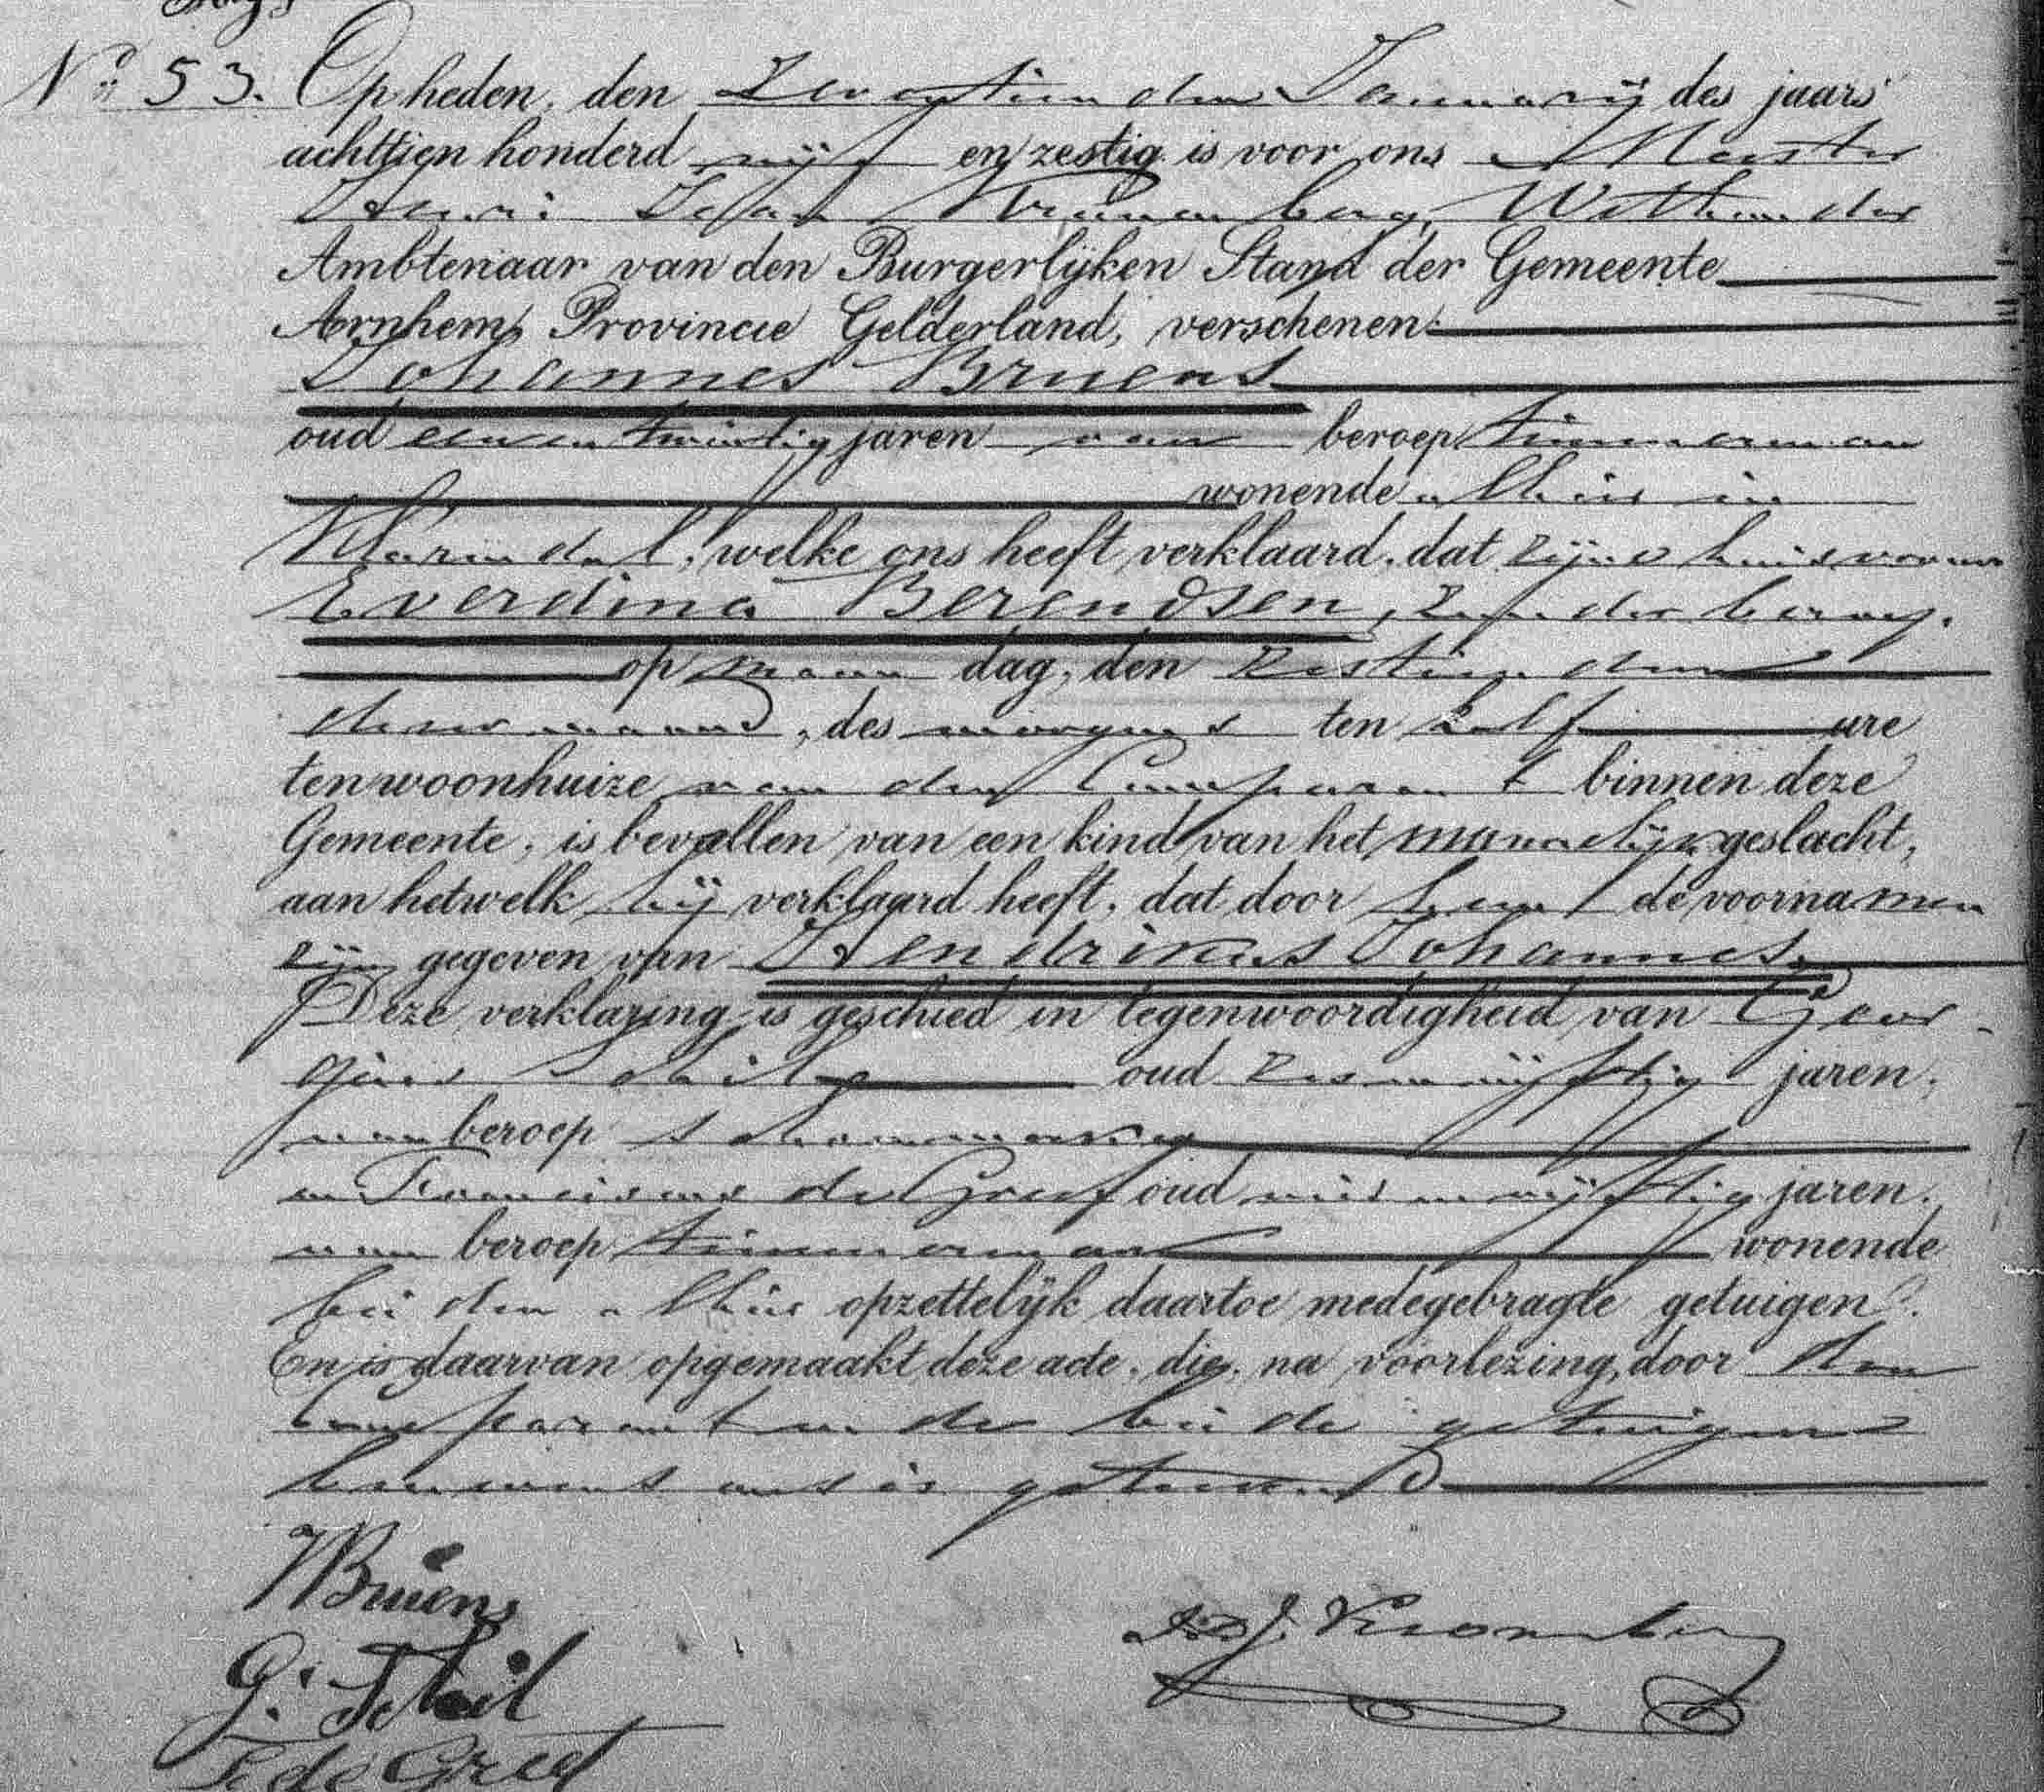 No. 53. Op heden, den Zeventienden Januarij des jaars
achttien honderd vijf en zestig is voor ons Meester
Henri Wethouder
Ambtenaar van den Burgerlijken Stand der Gemeente
Arnhem, Provincie Gelderland, verschenen:
Johannes Bruens
oud eenentwintig jaren van beroep timmerman
wonende alhier in
Klarendal, welke ons heeft verklaard, dat zijne huisvrouw
Everdina Berendsen, zonder beroep,
op maan dag, den zestienden
dezer maand, des morgens ten half ure
ten woonhuize van den Comparant binnen deze
Gemeente, is bevallen van een kind van het mannelijk geslacht,
aan hetwelk hij verklaard heeft, dat door hem de voornamen
zijn gegeven van Hendrikus Johannes.
Deze verklaring is geschied in tegenwoordigheid van Geor-
gius Schilp oud zesenvijftig jaren,
van beroep schoenmaker
en Franciscus de Greef oud jaren,
van beroep timmerman wonende
beiden alhier opzettelijk daartoe medegebragte getuigen.
En is daarvan opgemaakt deze acte, die, na voorlezing, door den
comparant en de beide getuigen
benevens ons is geteekend
Bruens
G: Schil
F de Greef
J. Kronenberg